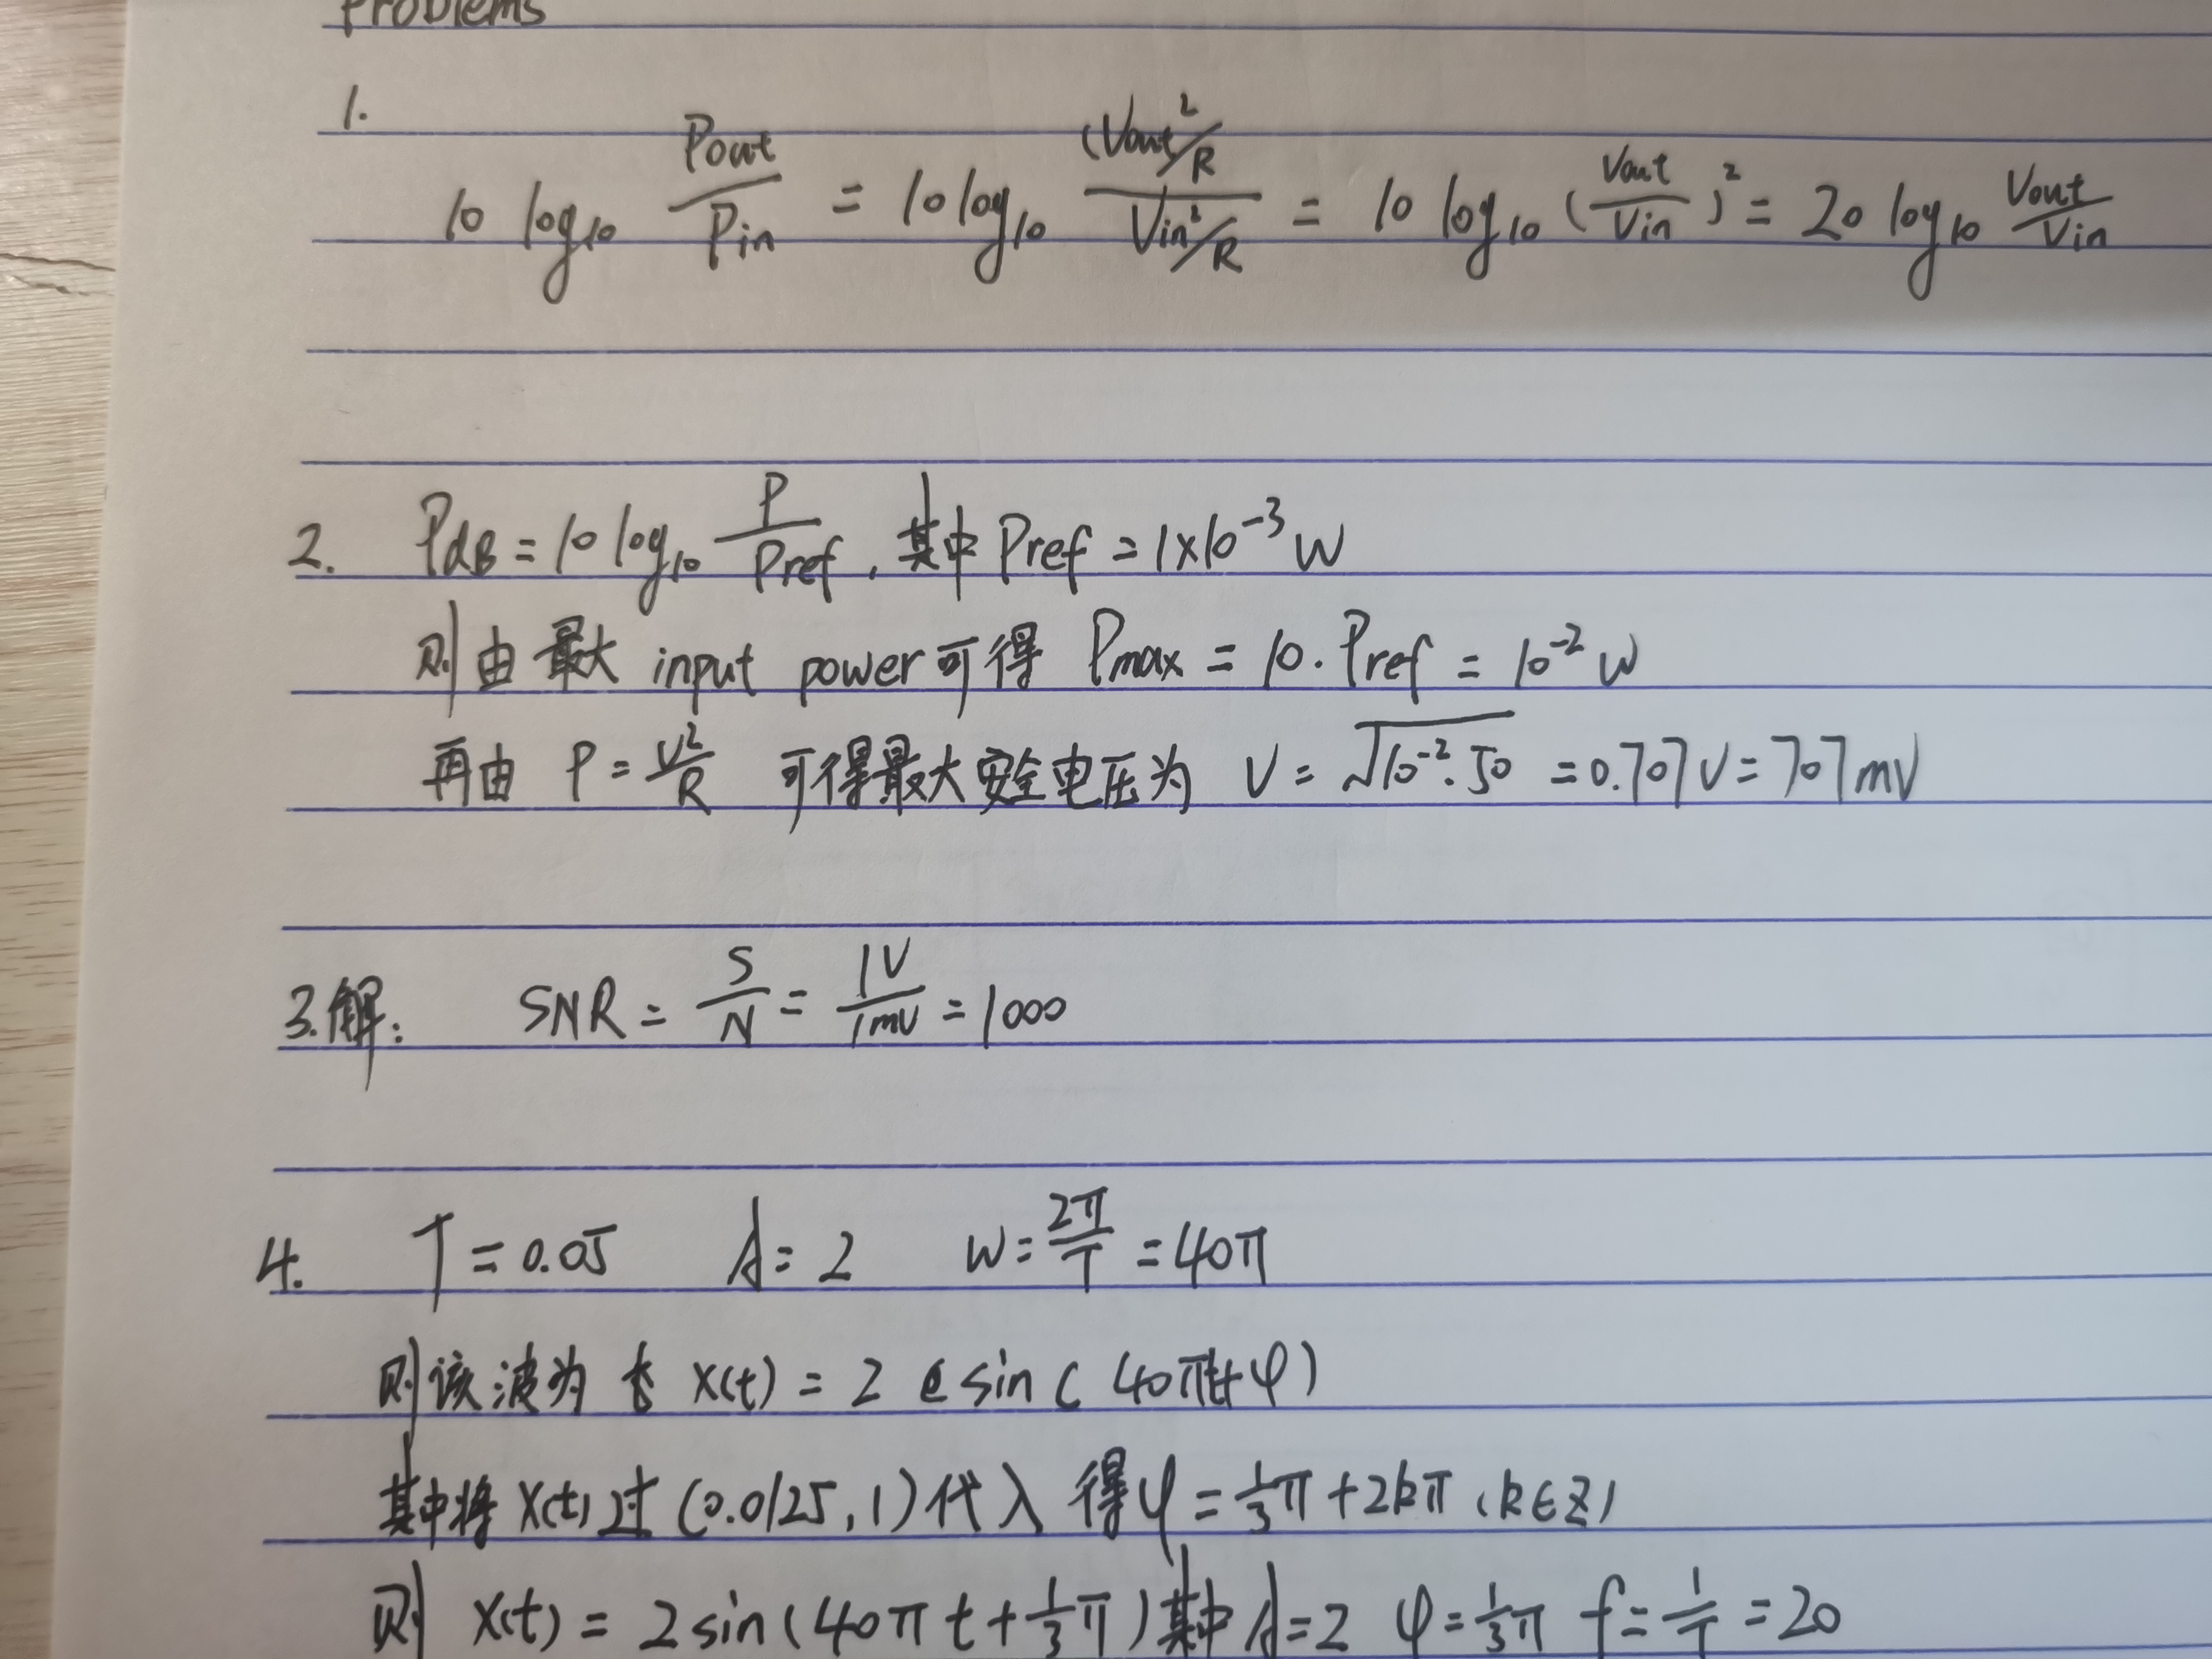 Problems
1.
10 log₁₀ Pout/Pin = 10 log₁₀ (Vout²/R / Vin²/R = 10 log₁₀ (Vout/Vin)² = 20 log₁₀ Vout/Vin
2. PdB = 10 log₁₀ P/Pref, 其中 Pref = 1×10⁻³ W
则由最大 input power 可得 Pmax = 10·Pref = 10⁻² W
再由 P = V²/R 可得最大安全电压为 V = √(10⁻²·50) = 0.707V = 707mV
3.解: SNR = S/N = 1V/1mV = 1000
4. T = 0.05 A = 2 w = 2π/T = 40π
则该波为 x(t) = 2 sin( 40πt+φ)
其中将 x(t)过(0.0125,1)代入 得φ = 1/3π + 2kπ (k∈Z)
则 x(t) = 2 sin(40πt + 1/3π) 其中 A=2 φ=1/3π f = 1/T = 20